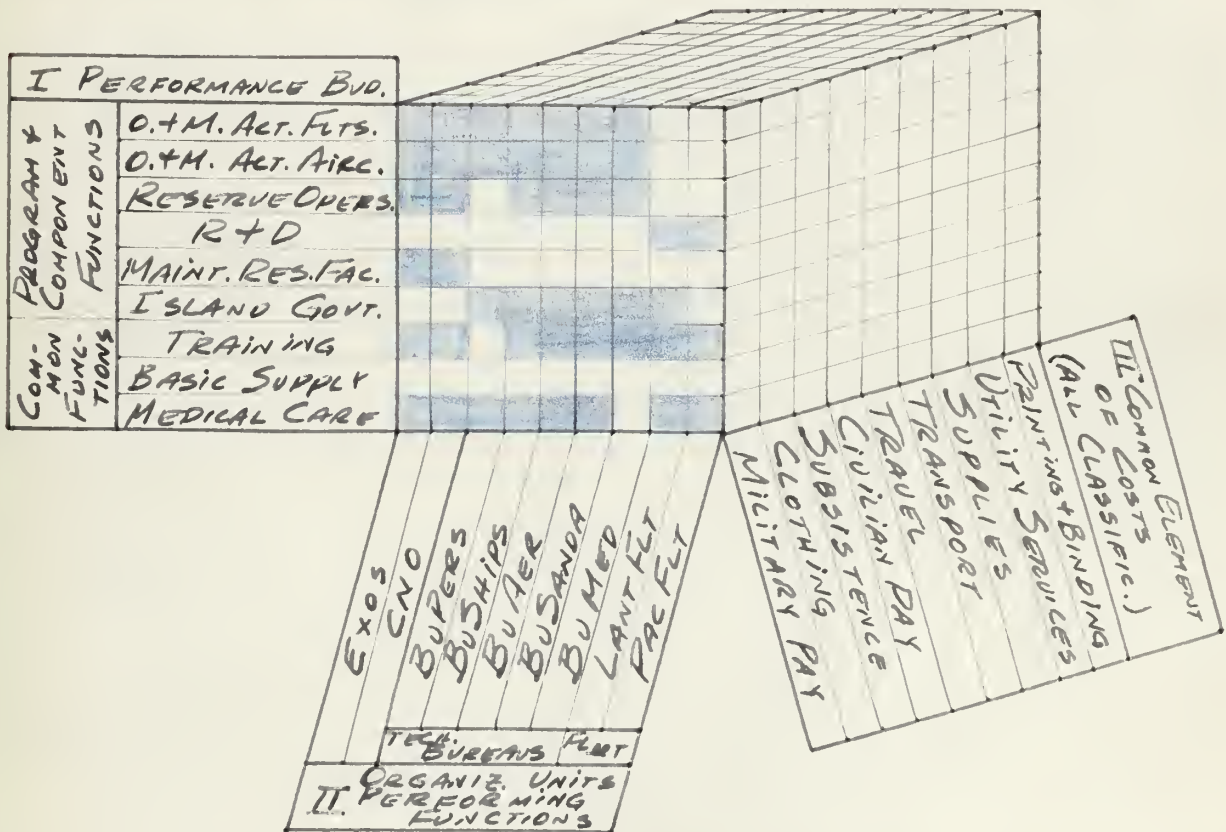 I PERFORMANCE BUD.
PROGRAM &
COMPONENT
FUNCTIONS
O.+M. ACT. FLTS.
O.+M. ACT. AIRC.
RESERVE OPERS.
R + D
MAINT. RES. FAC.
ISLAND GOVT.
COM-
MON
FUNC-
TIONS
TRAINING
BASIC SUPPLY
MEDICAL CARE
EXOS
CNO
BUPERS
BUSHIPS
BUAER
BUSANDA
BUMED
LANTFLT
PACFLT
TECH.
BUREAUS
FLEET
II ORGANIZ. UNITS
PERFORMING
FUNCTIONS
MILITARY PAY
CLOTHING
SUBSISTENCE
CIVILIAN PAY
TRAVEL
TRANSPORT
SUPPLIES
UTILITY SERVICES
PRINTING + BINDING
III COMMON ELEMENT
OF COSTS
(ALL CLASSIFIC.)